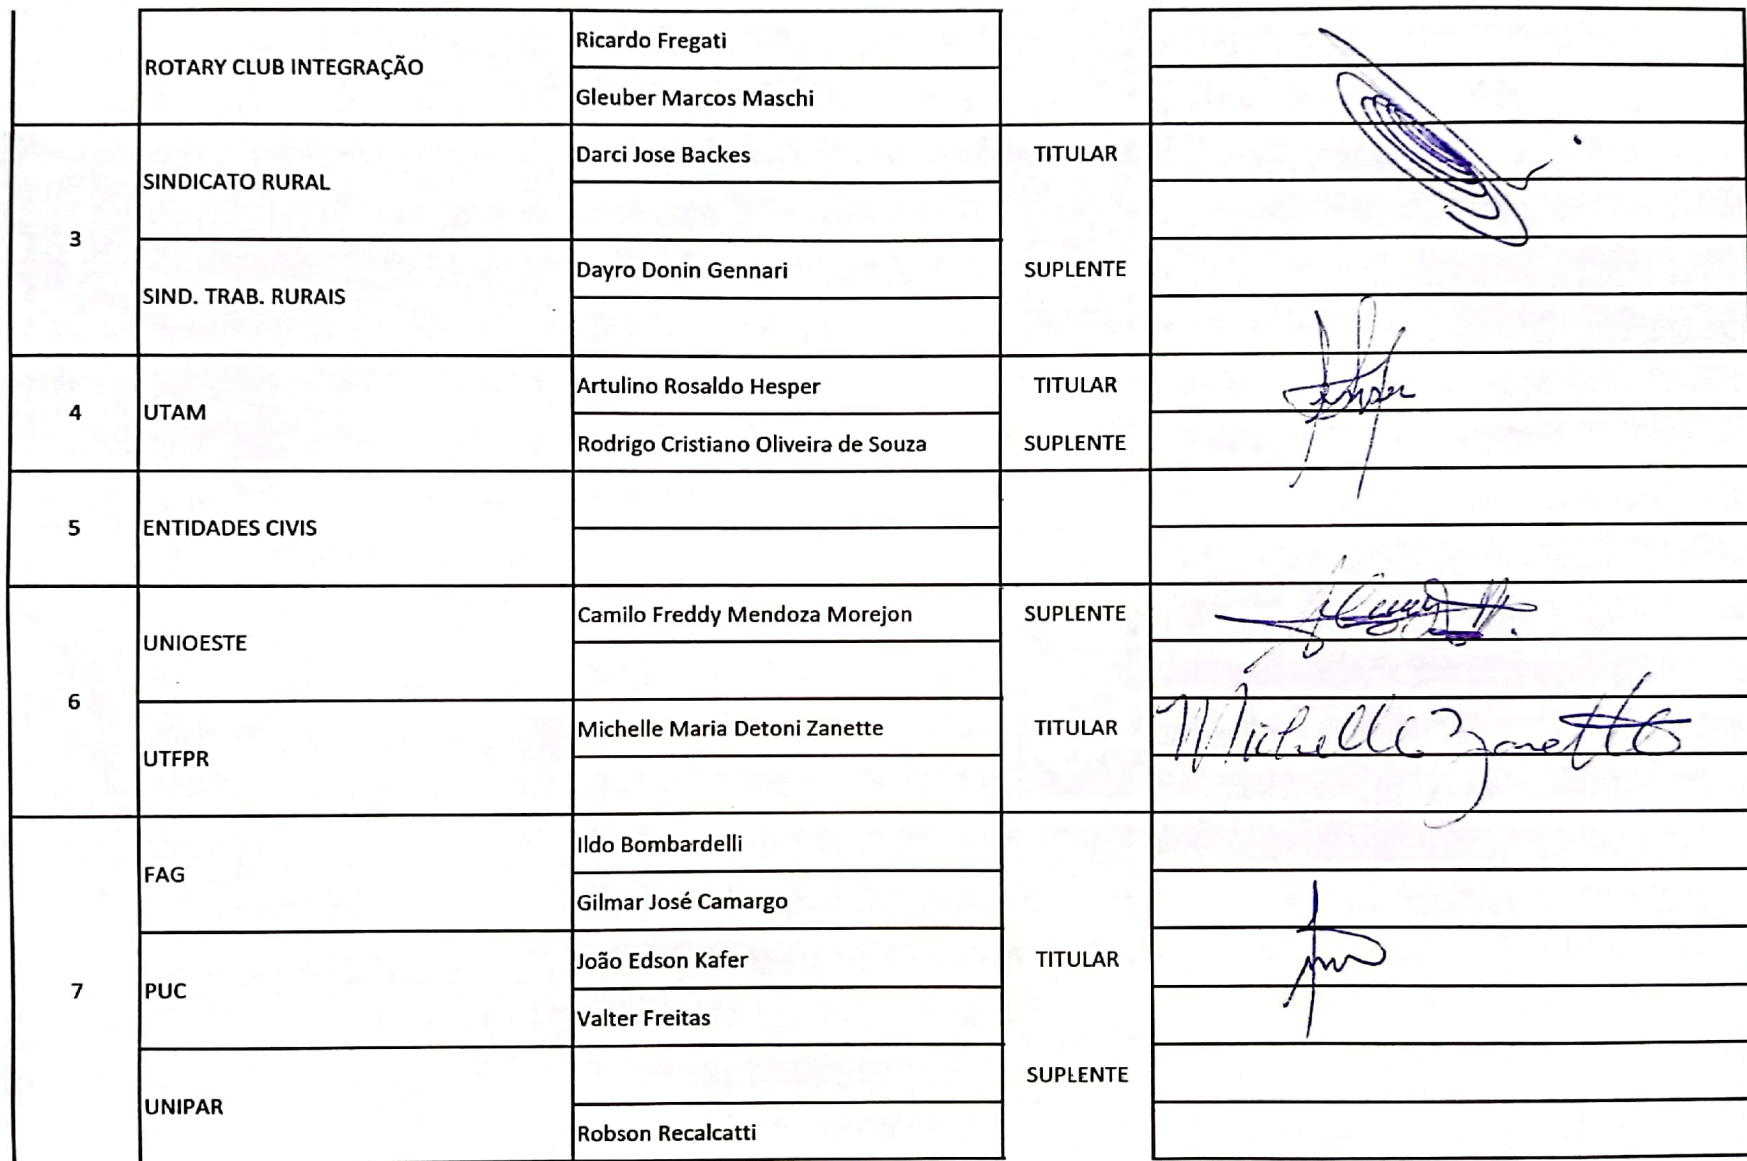 ROTARY CLUB INTEGRAÇÃO
Ricardo Fregati
Gleuber Marcos Maschi
3
SINDICATO RURAL
Darci Jose Backes
TITULAR
SIND. TRAB. RURAIS
Dayro Donin Gennari
SUPLENTE
4
UTAM
Artulino Rosaldo Hesper
TITULAR
Hesper
Rodrigo Cristiano Oliveira de Souza
SUPLENTE
5
ENTIDADES CIVIS
6
UNIOESTE
Camilo Freddy Mendoza Morejon
SUPLENTE
UTFPR
Michelle Maria Detoni Zanette
TITULAR
Michelle Zanette
7
FAG
Ildo Bombardelli
Gilmar José Camargo
PUC
João Edson Kafer
TITULAR
Valter Freitas
UNIPAR
SUPLENTE
Robson Recalcatti